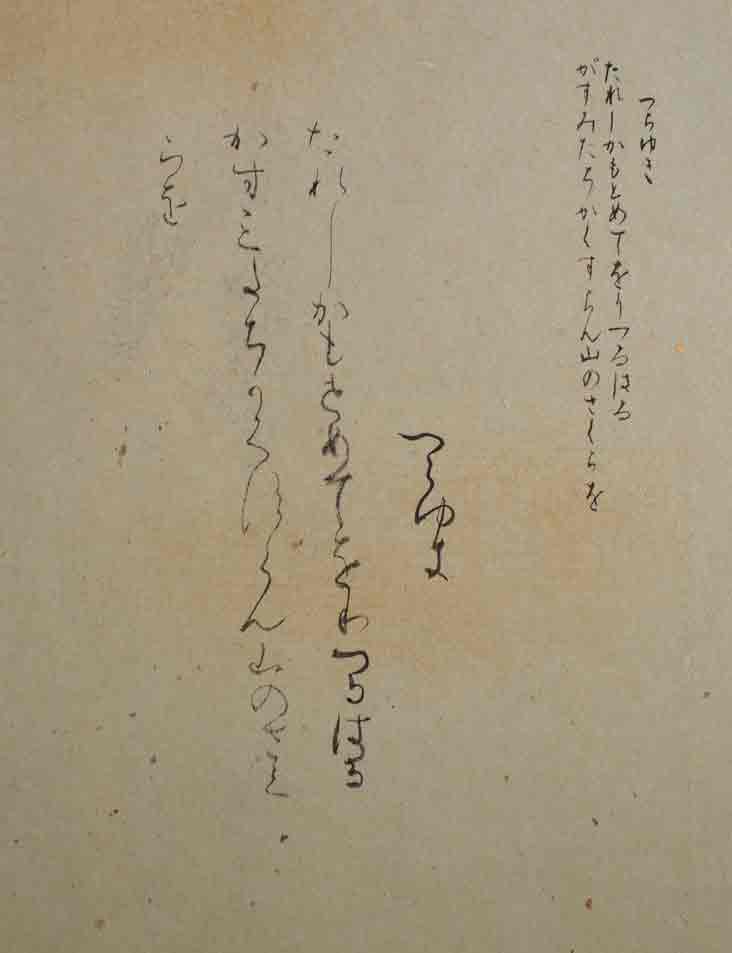 つらゆき
たれしかもとめてをりつるはる
がすみたちかくすらん山のさくらを
つらゆき
たれしかもとめてをりつるはる
かすみたちかくすらん山のさく
らを